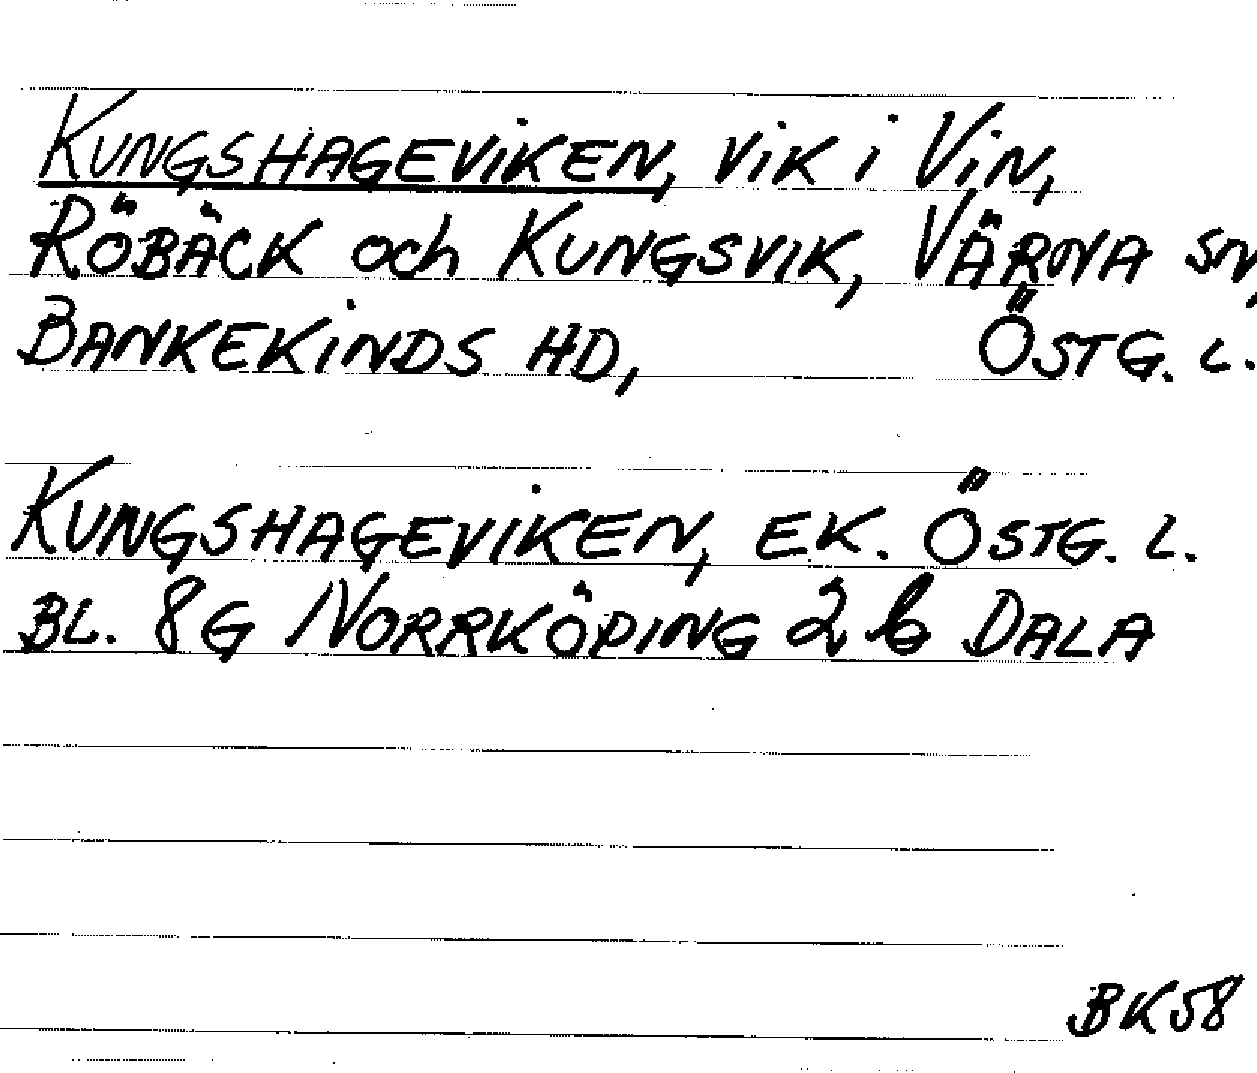 KUNGSHAGEVIKEN, VIK i VIN,
RÖBÄCK och KUNGSVIK, VÄRNA SN,
BANKEKINDS HD, ÖSTG. L.
KUNGSHAGEVIKEN, EK. ÖSTG. L.
BL. 8G NORRKÖPING 2 b DALA
BK58